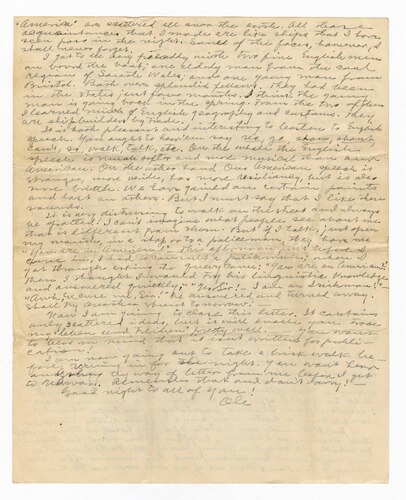 America" are scattered all over the earth. All these
acquaintances that I made are like ships that I have
seen pass in the night. Some of the faces, however, I
shall never forget.
I got to be very friendly with two fine Englishmen
on board the boat; one elderly man from the coal
regions of South Wales, and one young man from
Bristol. Both were splendid fellows. They had been
in the States just four months. I think the
man is going back in the spring. From the two of them
I learned much of English geography and customs. They
are shipbuilders by trade.
It is both pleasant and interesting to listen to English
speech. You ought to hear them say the
can't, so, walk, talk, etc. On the whole the English
speech is much softer and more musical than our
American. On the other hand Our American speech is
stronger, more virile, has more resiliency, but is also
more brittle. We have gained on certain points
and lost on others. But I must say that I like their
sounds.
It is my distinction to walk on the street and always
be spotted. I can't imagine what people see about me
that is different from them. But if I talk, just open
my mouth, in a shop or to a policeman, they have me
"You are an American." This afternoon just before I
came in, I had to consult a policeman; when I
got through, with the query came: "You are an American?"
Then I thought I would fix his linguistic knowledge
and answered quickly, "No Sir! I am an Irishman!"
"Awh, excuse me, sir." he answered and turned away.
Shall try another stunt tomorrow.
Now I am going to close this letter. It contains
only scattered ideas, but it will enable you to see
my ideas on London pretty well. You want
to bear in mind that it isn't written for publi-
cation.
I am now going out to take a brisk walk be-
fore turning in for the night. You won't hear
anything by way of letter from me before I get
to Norway. Remember that and don't worry!
Good night to all of you!
Ole